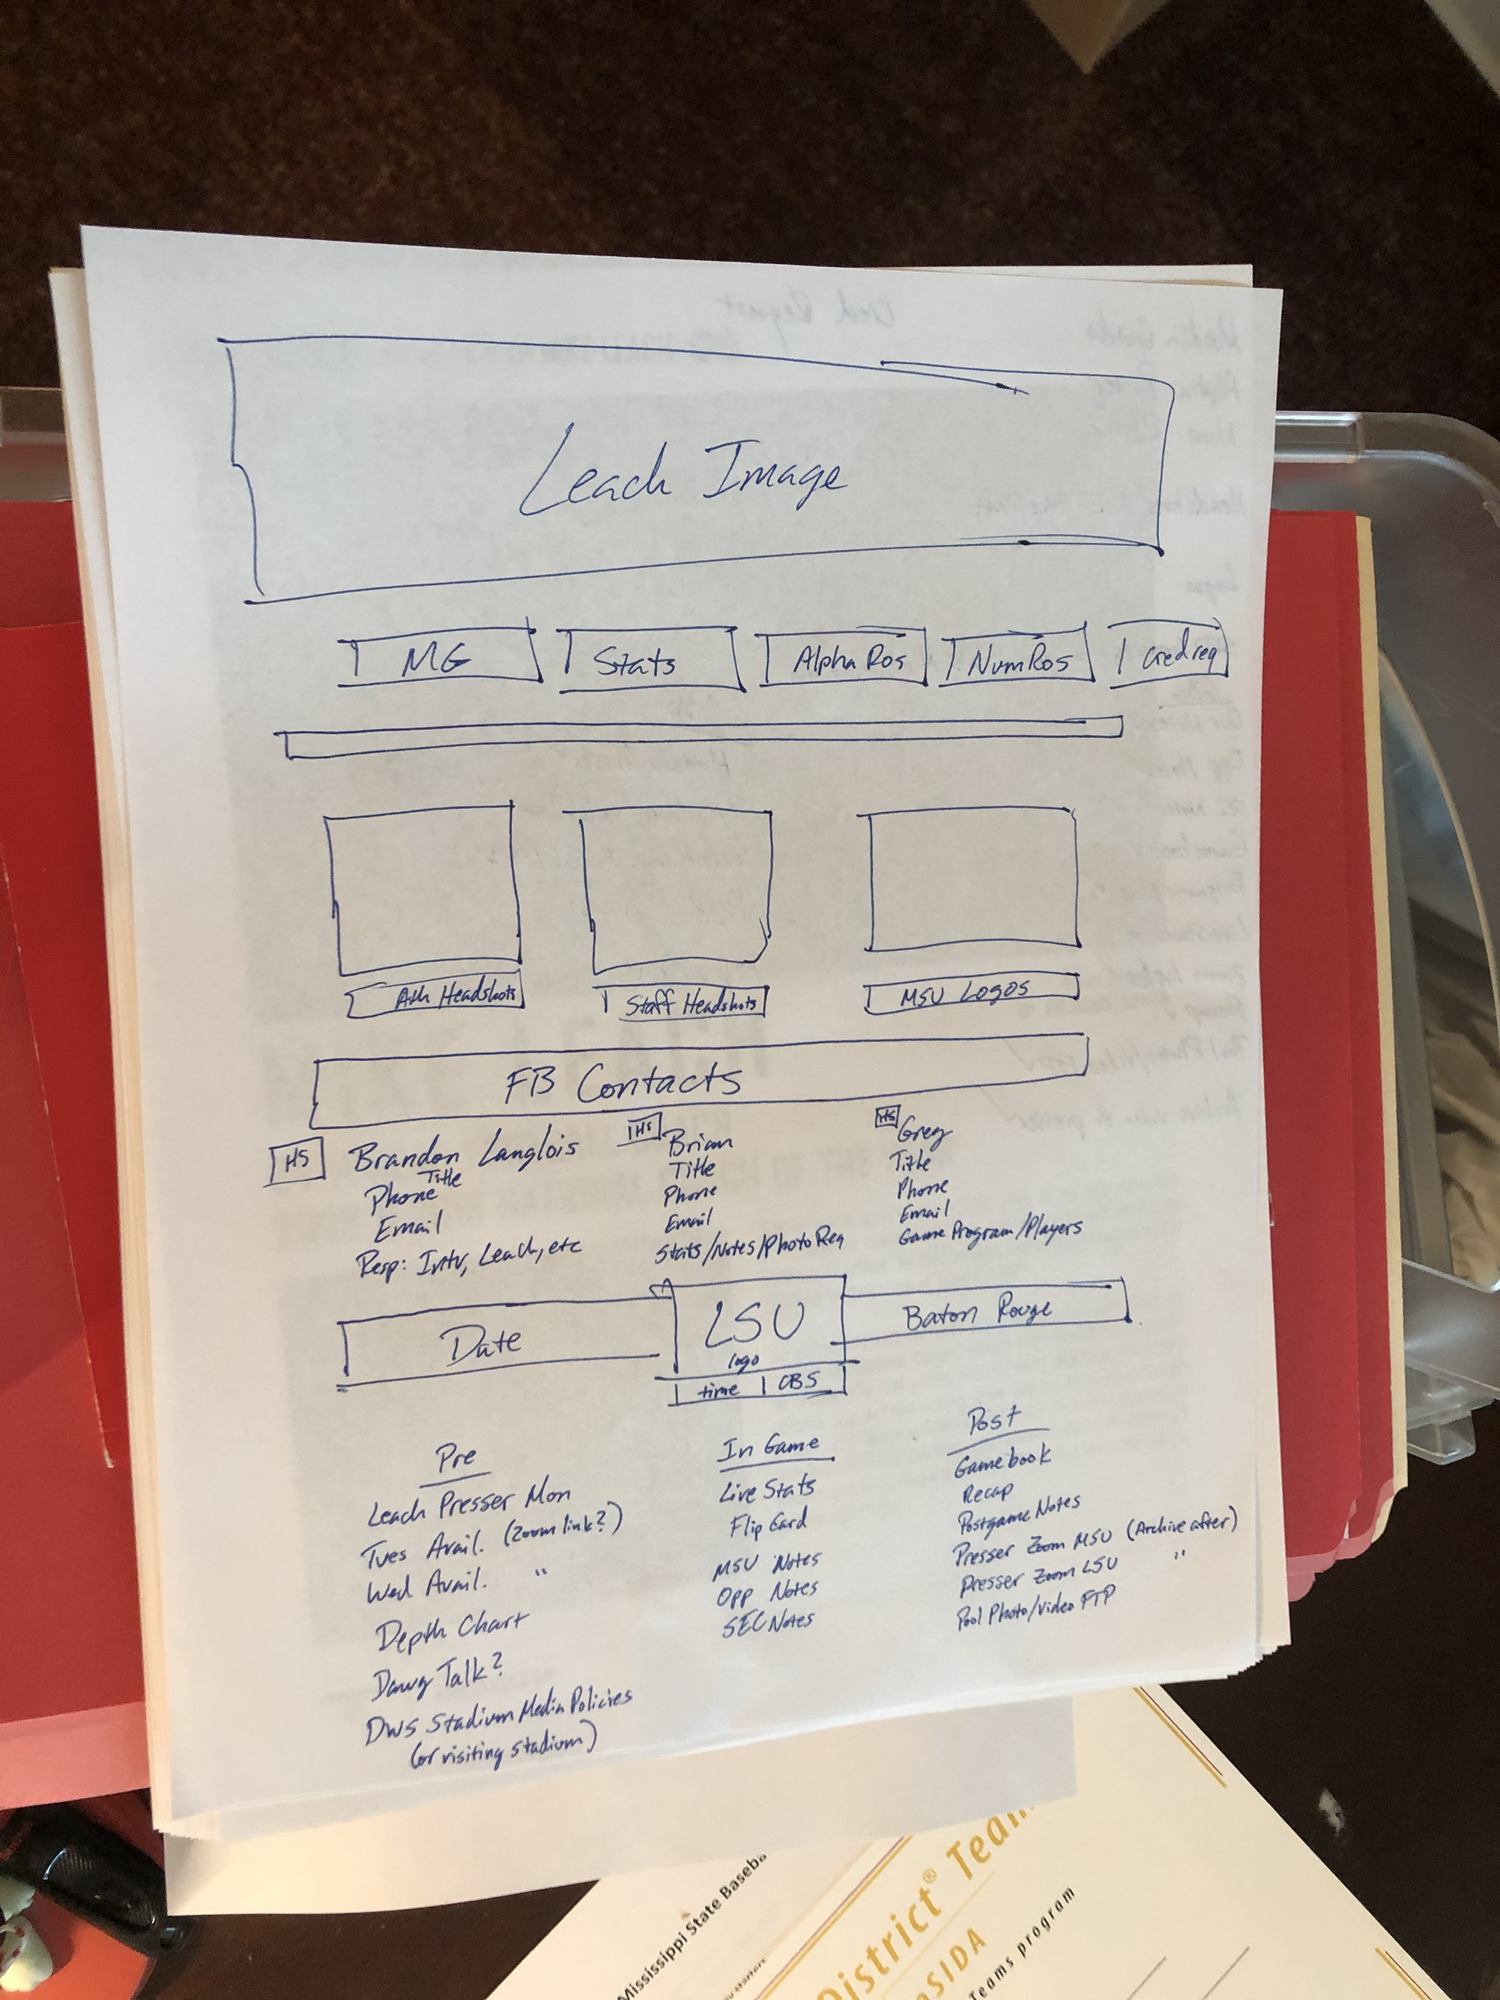 Leach Image
MG
Stats
AlphaRos
NumRos
Credreq
Ath Headshots
Staff Headshots
MSU Logos
FB Contacts
HS
Brandon Langlois
Title
Phone
Email
Resp: Intv, Leach, etc
HS
Brian
Title
Phone
Email
Stats/Notes/PhotoReq
HS
Greg
Title
Phone
Email
Game Program/Players
Date
LSU
logo
time | CBS
Baton Rouge
Pre
Leach Presser Mon
Tues Avail. (Zoom link?)
Wed Avail. "
Depth Chart
Dawg Talk?
DWS Stadium Media Policies
(or visiting stadium)
In Game
Live Stats
Flip Card
MSU Notes
Opp Notes
SEC Notes
Post
Gamebook
Recap
Postgame Notes
Presser Zoom MSU (Archive after)
Presser Zoom LSU "
Pool Photo/Video FTP
Mississippi State Baseba
District® Team
SIDA
Teams program